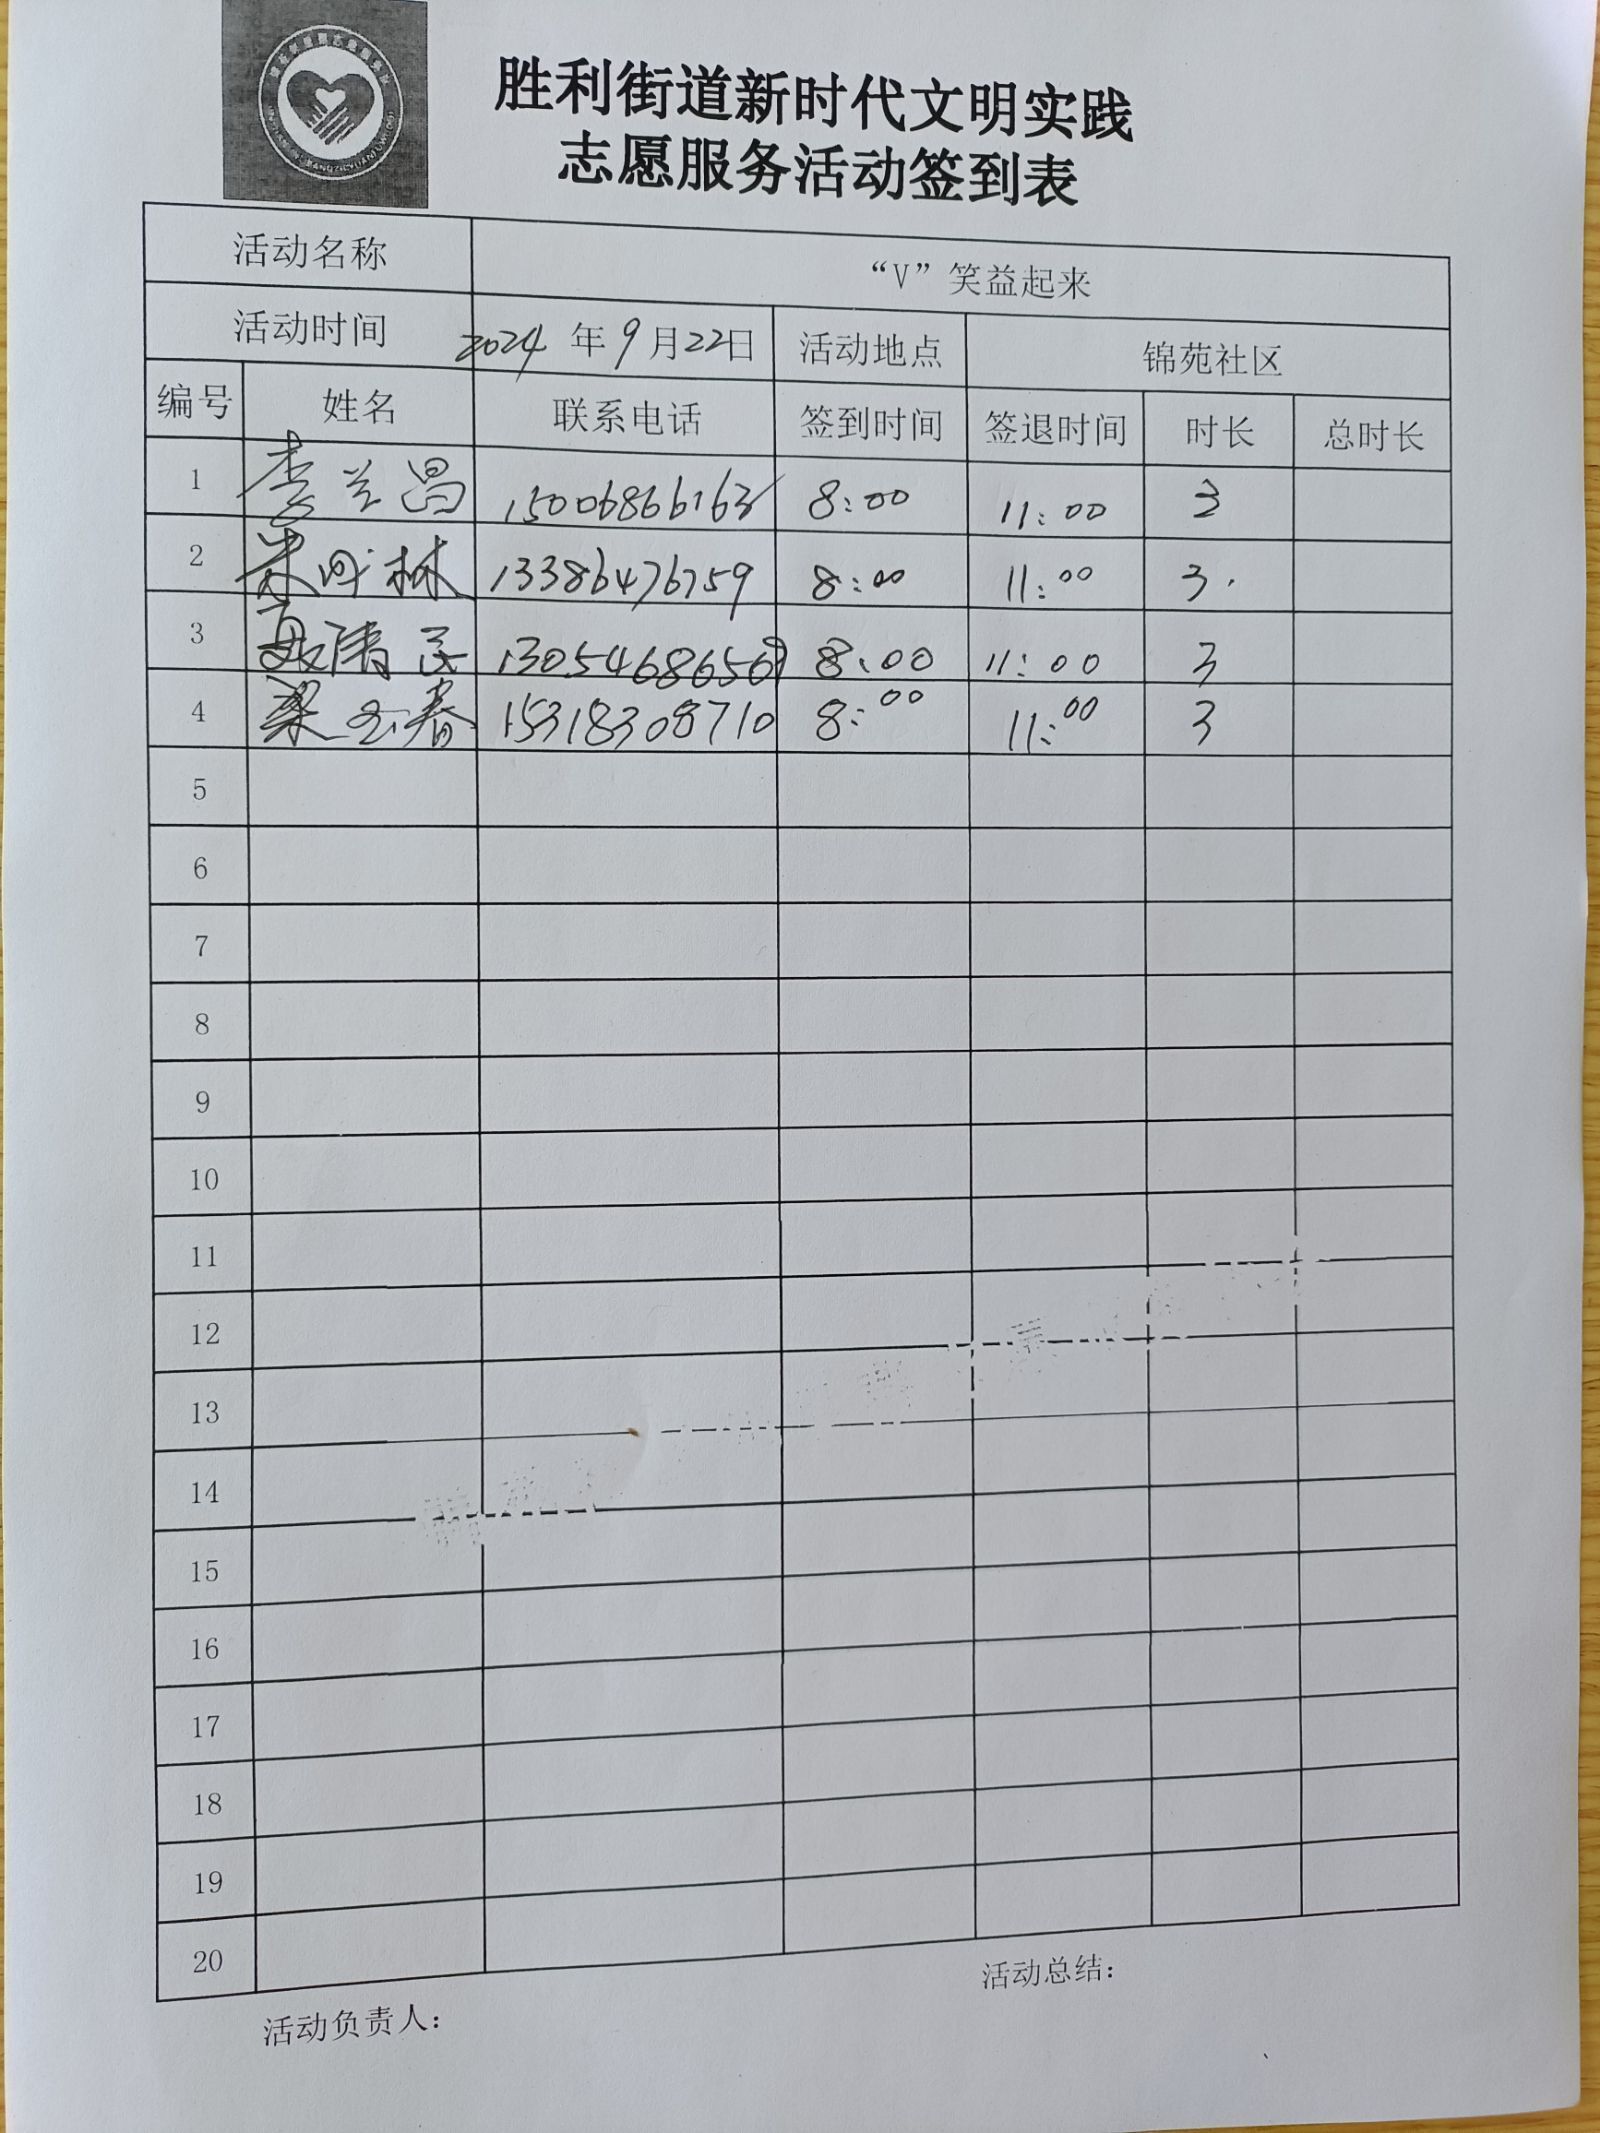 胜利街道新时代文明实践
志愿服务活动签到表
活动名称 “V”笑益起来
活动时间 2024年9月22日 活动地点 锦苑社区
编号 姓名 联系电话 签到时间 签退时间 时长 总时长
1 李兰昌 15006866163 8:00 11:00 3
2 林 13386476759 8:00 11:00 3.
3 13054686569 8:00 11:00 3
4 梁玉春 15318308710 8:00 11:00 3
5
6
7
8
9
10
11
12
13
14
15
16
17
18
19
20
活动负责人： 活动总结：